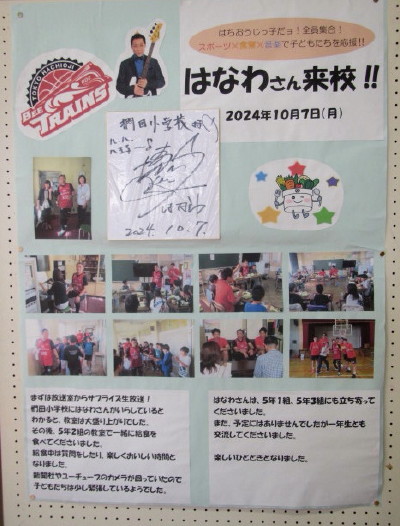 はちおうじっ子だョ！全員集合！
スポーツ×食育×音楽で子どもたちを応援!!
はなわさん来校!!
2024年10月7日(月)
TOKYO HACHIOJI
BEE TRAINS
椚田小学校
2024. 10. 7.
まずは放送室からサプライズ生放送！
椚田小学校にはなわさんがいらしていると
わかると、教室は大盛り上がりでした。
その後、5年2組の教室で一緒に給食を
食べてくださいました。
給食中は質問をしたり、楽しくおいしい時間と
なりました。
新聞社やユーチューブのカメラが回っていたので
子どもたちは少し緊張しているようでした。
はなわさんは、5年1組、5年3組にも立ち寄って
くださいました。
また、予定にはありませんでしたが一年生とも
交流してくださいました。
楽しいひとときとなりました。